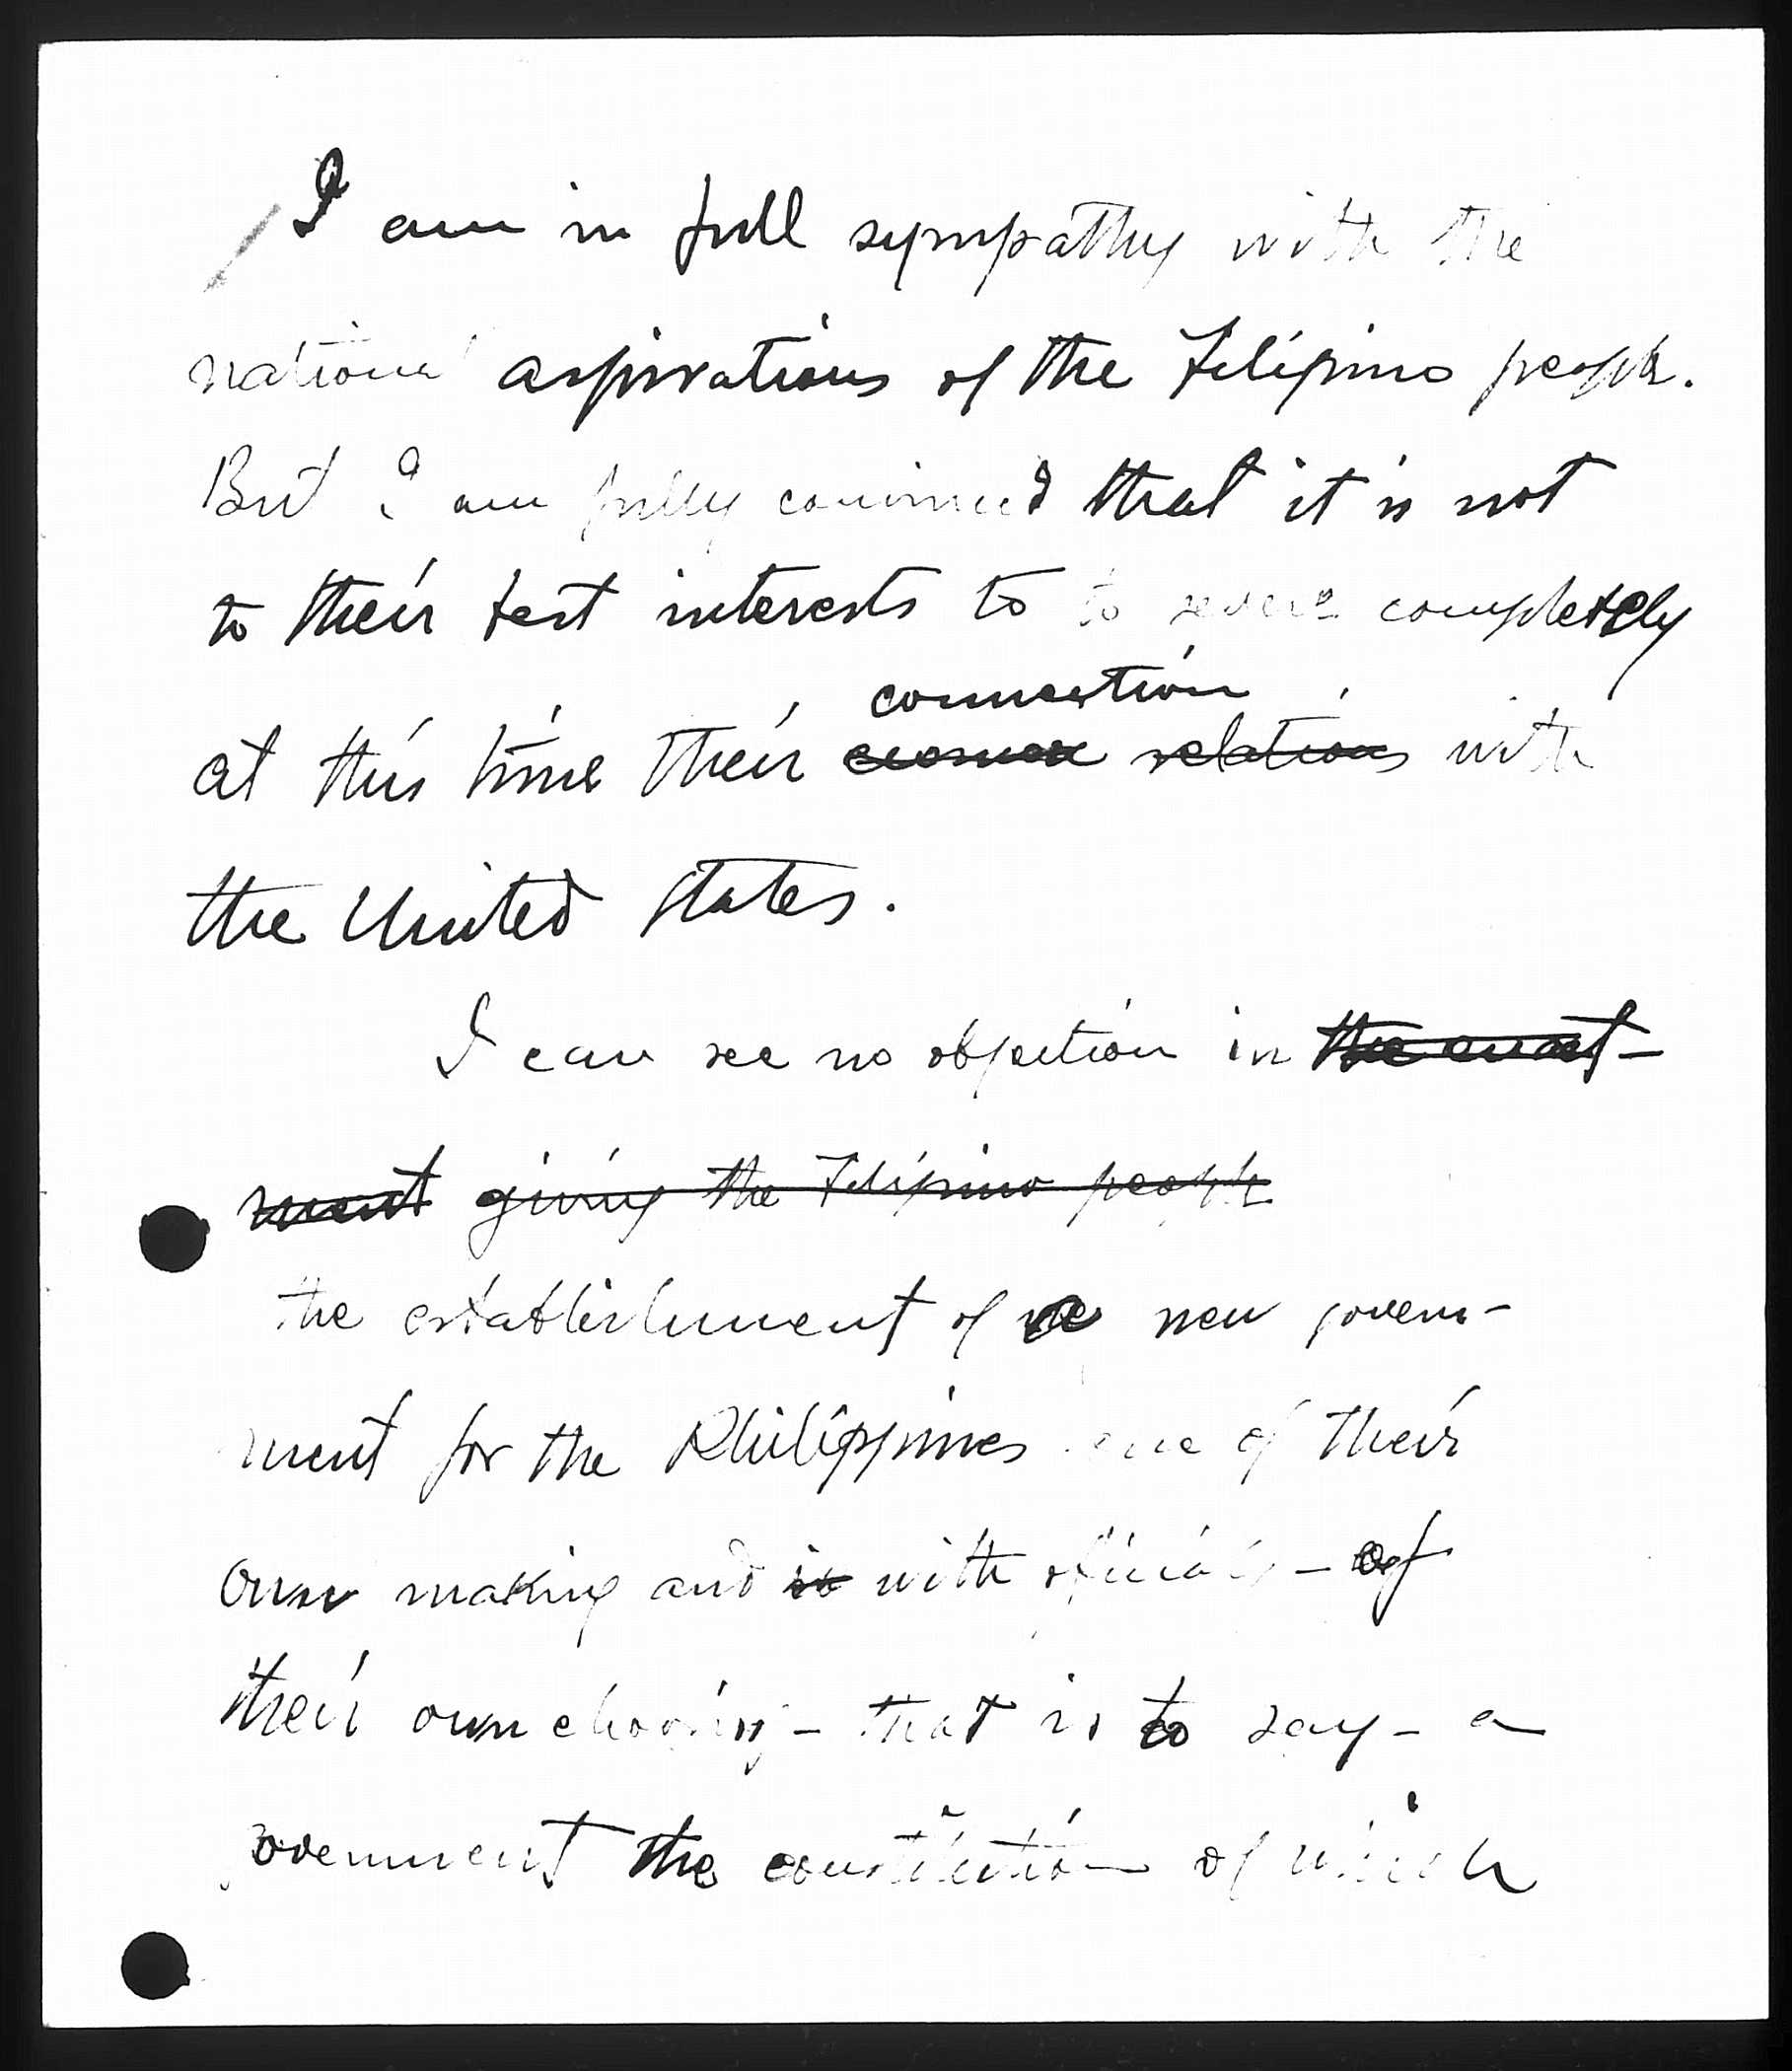 I am in full sympathy with the
national aspirations of the Filipino people.
But I am fully convinced that it is not
to their best interests to to sever completely
connection
at this time their relations with
the United States.
I can see no objection in the enact-
ment giving the Filipino people
the establishment of a new govern-
ment for the Philippines one of their
own making and with officials - of
their own choosing - that is to say - a
government the constitution of which